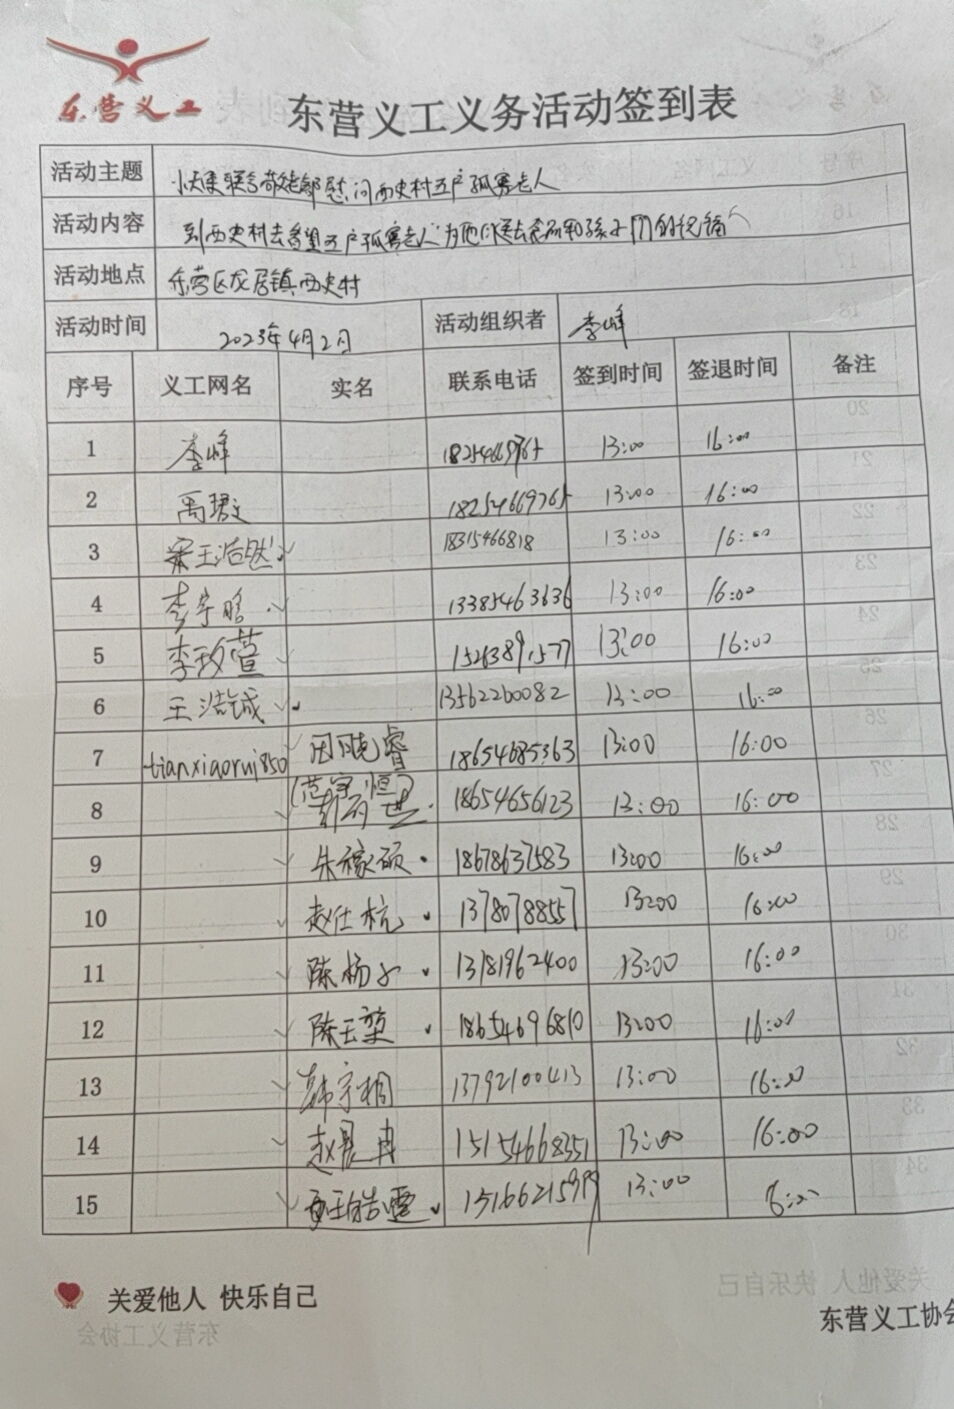 东营义工
东营义工义务活动签到表
活动主题 慰问西史村五户孤寡老人
活动内容 到西史村去看望五户孤寡老人 为他们送去 和孩子们的祝福
活动地点 东营区龙居镇西史村
活动时间 2023年4月2日 活动组织者 李峰
序号 义工网名 实名 联系电话 签到时间 签退时间 备注
1 李峰 18254669765 13:00 16:00
2 禹珺文 18254669765 13:00 16:00
3 王浩然 18315466818 13:00 16:00
4 李宇晗 13385463636 13:00 16:00
5 李玫萱 15263891577 13:00 16:00
6 王浩诚 13562260082 13:00 16:00
7 tianxiaorui850 田晓睿 18654685363 13:00 16:00
8 18654656123 13:00 16:00
9 朱稼硕 18678637583 13:00 16:00
10 赵仕杭 13780788557 13:00 16:00
11 陈杨子 13181962400 13:00 16:00
12 陈玉堃 18654696810 13:00 16:00
13 韩宇桐 13792100413 13:00 16:00
14 赵晨冉 15154668351 13:00 16:00
15 15166215999 13:00 16:00
关爱他人 快乐自己
东营义工协会